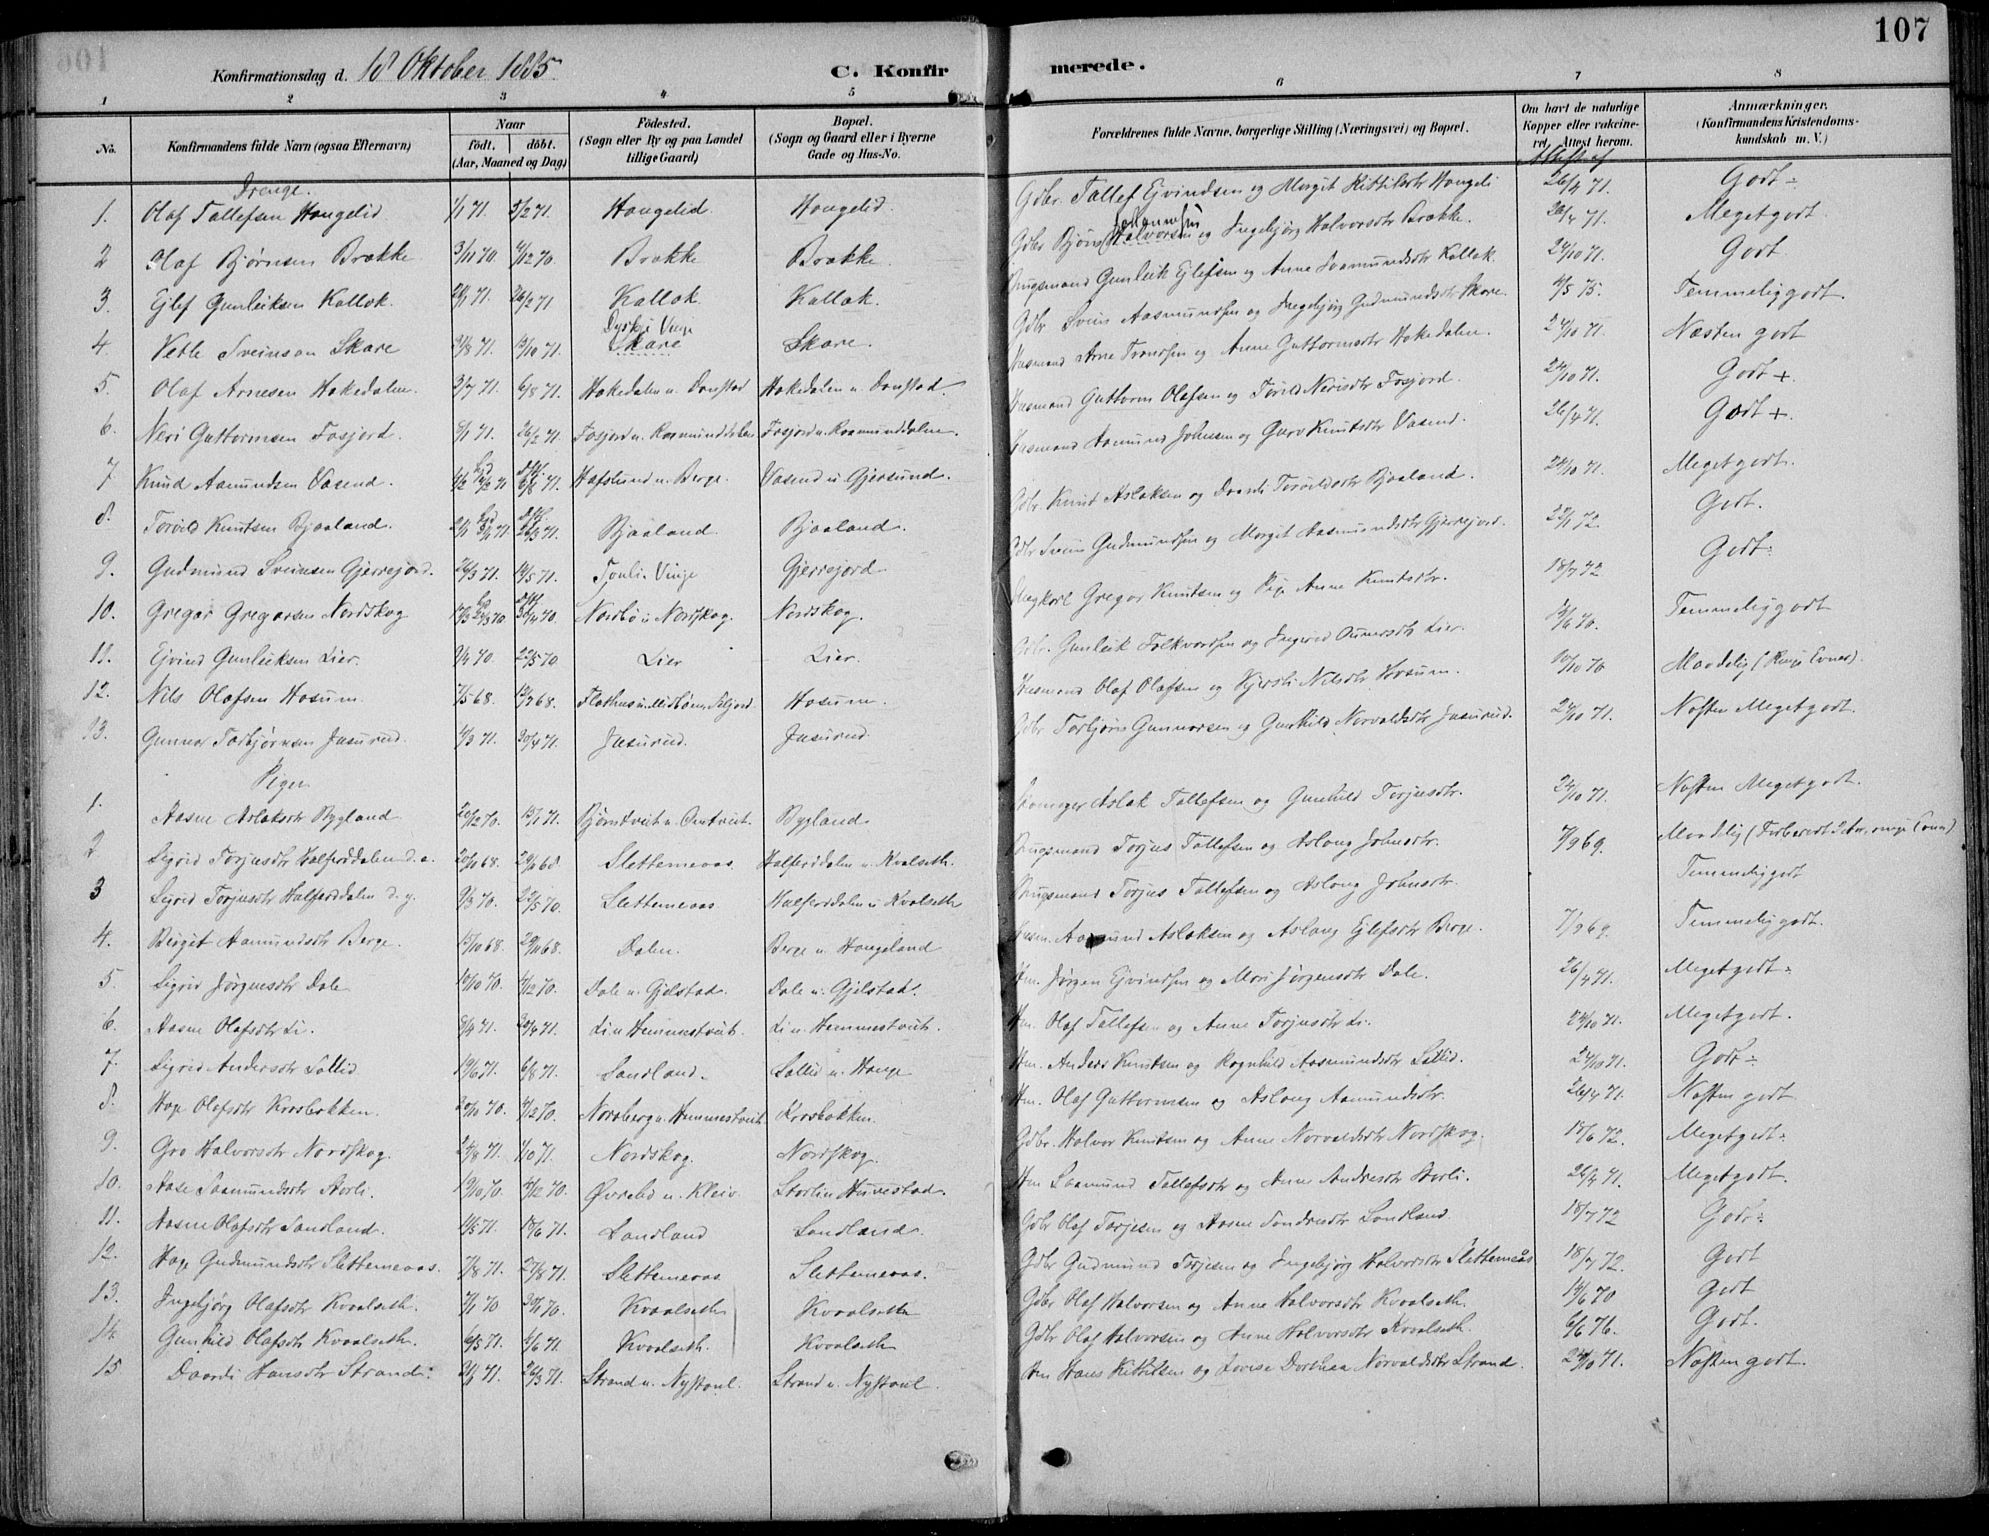 107
Konfirmationsdag d. 18 Oktober 1885. C. Konfirmerede.
1 2 3 4 5 6 7 8
No. Konfirmandens fulde Navn (ogsaa Efternavn) Naar født. døbt. (Aar, Maaned og Dag) Födested. (Sogn eller By og paa Landet tillige Gaard) Bopæl. (Sogn og Gaard eller i Byerne Gade og Hus-No. Forældrenes fulde Navne, borgerlige Stilling (Næringsvei) og Bopæl. Om havt de naturlige Kopper eller vakcineret, Attest herom. Anmærkninger. (Konfirmandens Kristendomskundskab m. V.)
Attest af
Drenge.
1. Olaf Tallefsen Hougelid 1/1 71. 5/2 71. Hougelid. Hougelid. Gdbr. Tallef Ejvindsen og Morgit Kittilsdtr Hougeli 26/4 71. Godt÷
2 Olaf Bjørnsen Brække 3/11 70. 4/12 70. Brække Brække. Gdbr Bjørn Halvorsen og Ingebjørg Halvorsdtr Brække. 26/4 71. Meget godt
3. Ejlef Gunleiksen Kallak. 26/2 71 Kallak. Kallak. Brugsmand Gunleik Ejlefsen og Anne Saamundsdtr Kallak 24/10 71. Godt
4. Vetle Sveinson Skare 71. 71. Vinje Skare Skare. Gdbr Svein Aasmundsen og Ingebjørg Gudmundsdtr Skare. 4/5 75. Temmelig godt.
5. Olaf Arnesen Hakedalen. 3/7 71. 6/8 71. Hakedalen u. Donstad Hakedalen u. Donstad. Husmand Arne Trondsen og Anne Guttormsdtr Hakedalen. 24/10 71. Næsten godt
6. Neri Guttormsen Fosjord. 8/1 71. 26/2 71. Fosjord u. Raamunddalen Fosjord u. Raamunddalen. Husmand Guttorm Olafsen og Torild Nerisdtr Fosjord. 24/10 71. Godt +
7 Knud Aamundsen Vasend. 71. Hafslund u. Berge. Vasend u. Gjersund. Husmand Aamund Johnsen og Guro Knutsdtr Vasend. 26/4 71. Godt +
8. Torvild Knutsen Bjaaland. 71. Bjaaland. Bjaaland. Gdbr. Knut Aslaksen og Daardi Torvildsdtr Bjaaland. 24/10 71. Meget godt.
9. Gudmund Sveinsen Gjerrejord. 26/3 71. 14/5 71. Tonli. Vinje Gjerrejord Gdbr Svein Gudmundsen og Morgit Aasmundsdtr Gjerrejord. 22/1 72. Godt.
10. Gregar Gregarsen Nordskog 70. Nordbø u. Nordskog. Nordskog. Ungkarl Gregar Knutsen og Pige Anne Knutsdtr. 18/7 72 Godt÷
11. Ejvind Gunleiksen Lier. 9/4 70. 22/5 70. Lier Lier. Gdbr. Gunleik Folkvordsen og Ingerid Ounersdtr Lier. 70. Temmelig godt
12. Nils Olafsen Hosum. 7/5 68. 68. Flathus u. Midbøen, Seljord. Hosum. Husmand Olaf Olafsen og Kjersti Nilsdtr Hosum. 70 Maadelig (Ringe Evner).
13. Gunnar Torbjørnsen Jusurud. 4/3 71. 30/4 71. Jusurud. Jusurud. Gdbr Torbjørn Gunnarsen og Gunhild Norvaldsdtr Jusurud. 24/10 71. Næsten Meget godt.
Piger
1. Aasne Aslaksdtr Bygland 70. 71. Bjørntveit u. Omtveit. Bygland Aslak Tallefsen og Gunhild Torjusdtr. 24/10 71. Næsten Meget godt.
2 Sigrid Torjusdtr Halferddalen d. æ. 68. 68. Slettemeaas Halferddalen u. Kvalseth. Brugsmand Torjus Tallefsen og Aslaug Johnsdtr. 7/9 69. Maadelig (Forberedt 2 Aar, ringe Evner)
3 Sigrid Torjusdtr Halferddalen d. y. 9/3 70. 22/5 70. Slettemeaas Halferddalen u. Kvalseth Brugsmand Torjus Tallefsen og Aslaug Johnsdtr. Temmelig godt
4. Birgit Aamundsdtr Berge. 15/10 68. 29/11 68. Dalen. Berge u. Hougeland Husm. Aamund Aslaksen og Aslaug Ejlefsdtr Berge. 7/9 69. Temmelig godt.
5. Sigrid Jørgensdtr Dale 70. 4/12 70. Dale u. Gjelstad. Dale u. Gjelstad. Hm. Jørgen Ejvindsen og Mari Jørgensdtr Dale. 26/4 71. Meget godt÷
6. Aasne Olafsdtr Li. 8/4 71. 30/4 71. Li u. Hemmestveit. Li u. Hemmestveit. Hm. Olaf Tallefsen og Anne Torjusdtr Li. 24/10 71. Meget godt.
7. Sigrid Andersdtr Sollid 19/6 71. 6/8 71. Sandland. Sollid u. Hauge Hm. Anders Knutsen og Ragnhild Aasmundsdtr Sollid. 24/10 71. Godt÷
8. Hage Olafsdtr Krosbakken. 70. 4/12 70. Norsberg u. Hemmestveit. Krosbakken. Hm. Olaf Guttormsen og Aslaug Aamundsdtr. 26/4 71. Næsten godt
9. Gro Halvorsdtr Nordskog. 24/8 71. 1/10 71. Nordskog. Nordskog. Gdbr. Halvor Knutsen og Anne Norvaldsdtr Nordskog. 72. Meget godt÷
10. Aase Saamundsdtr Storli. 19/10 70. 4/12 70. Øvrebø u. Kleiv. Storli u. Huvestad. Hm Saamund Tallefsdtr og Anne Andresdtr Storli. 26/4 71. Meget godt.
11. Aasne Olafsdtr Sandland. 71. 18/6 71. Sandland Sandland. Gdbr Olaf Torjesen og Aasne Sondresdtr Sandland. 18/7 72 Godt÷
12. Hage Gudmundsdtr Slettemeaas. 7/8 71. 27/8 71. Slettemeaas Slettemeaas. Gdbr Gudmund Torjesen og Ingebjørg Halvorsdtr Slettemeås 18/7 72. Godt
13. Ingebjørg Olafsdtr Kvaalseth. 7/1 70 70. Kvaalseth Kvaalseth Gdbr Olaf Halvorsen og Anne Halvorsdtr Kvaalseth. 14/6 70 Godt
14. Gunhild Olafsdtr Kvaalseth. 6/5 71. 4/6 71. Kvaalseth. Kvaalseth Gdbr Olaf Halvorsen og Anne Halvorsdtr Kvaalseth. 6/6 76. Godt.
15 Daardi Hansdtr Strand. 71. 26/3 71. Strand u. Nystaul. Strand u. Nystaul. Hm Hans Kittilsen og Dorthea Norvaldsdtr Strand. 24/10 71. Næsten godt.